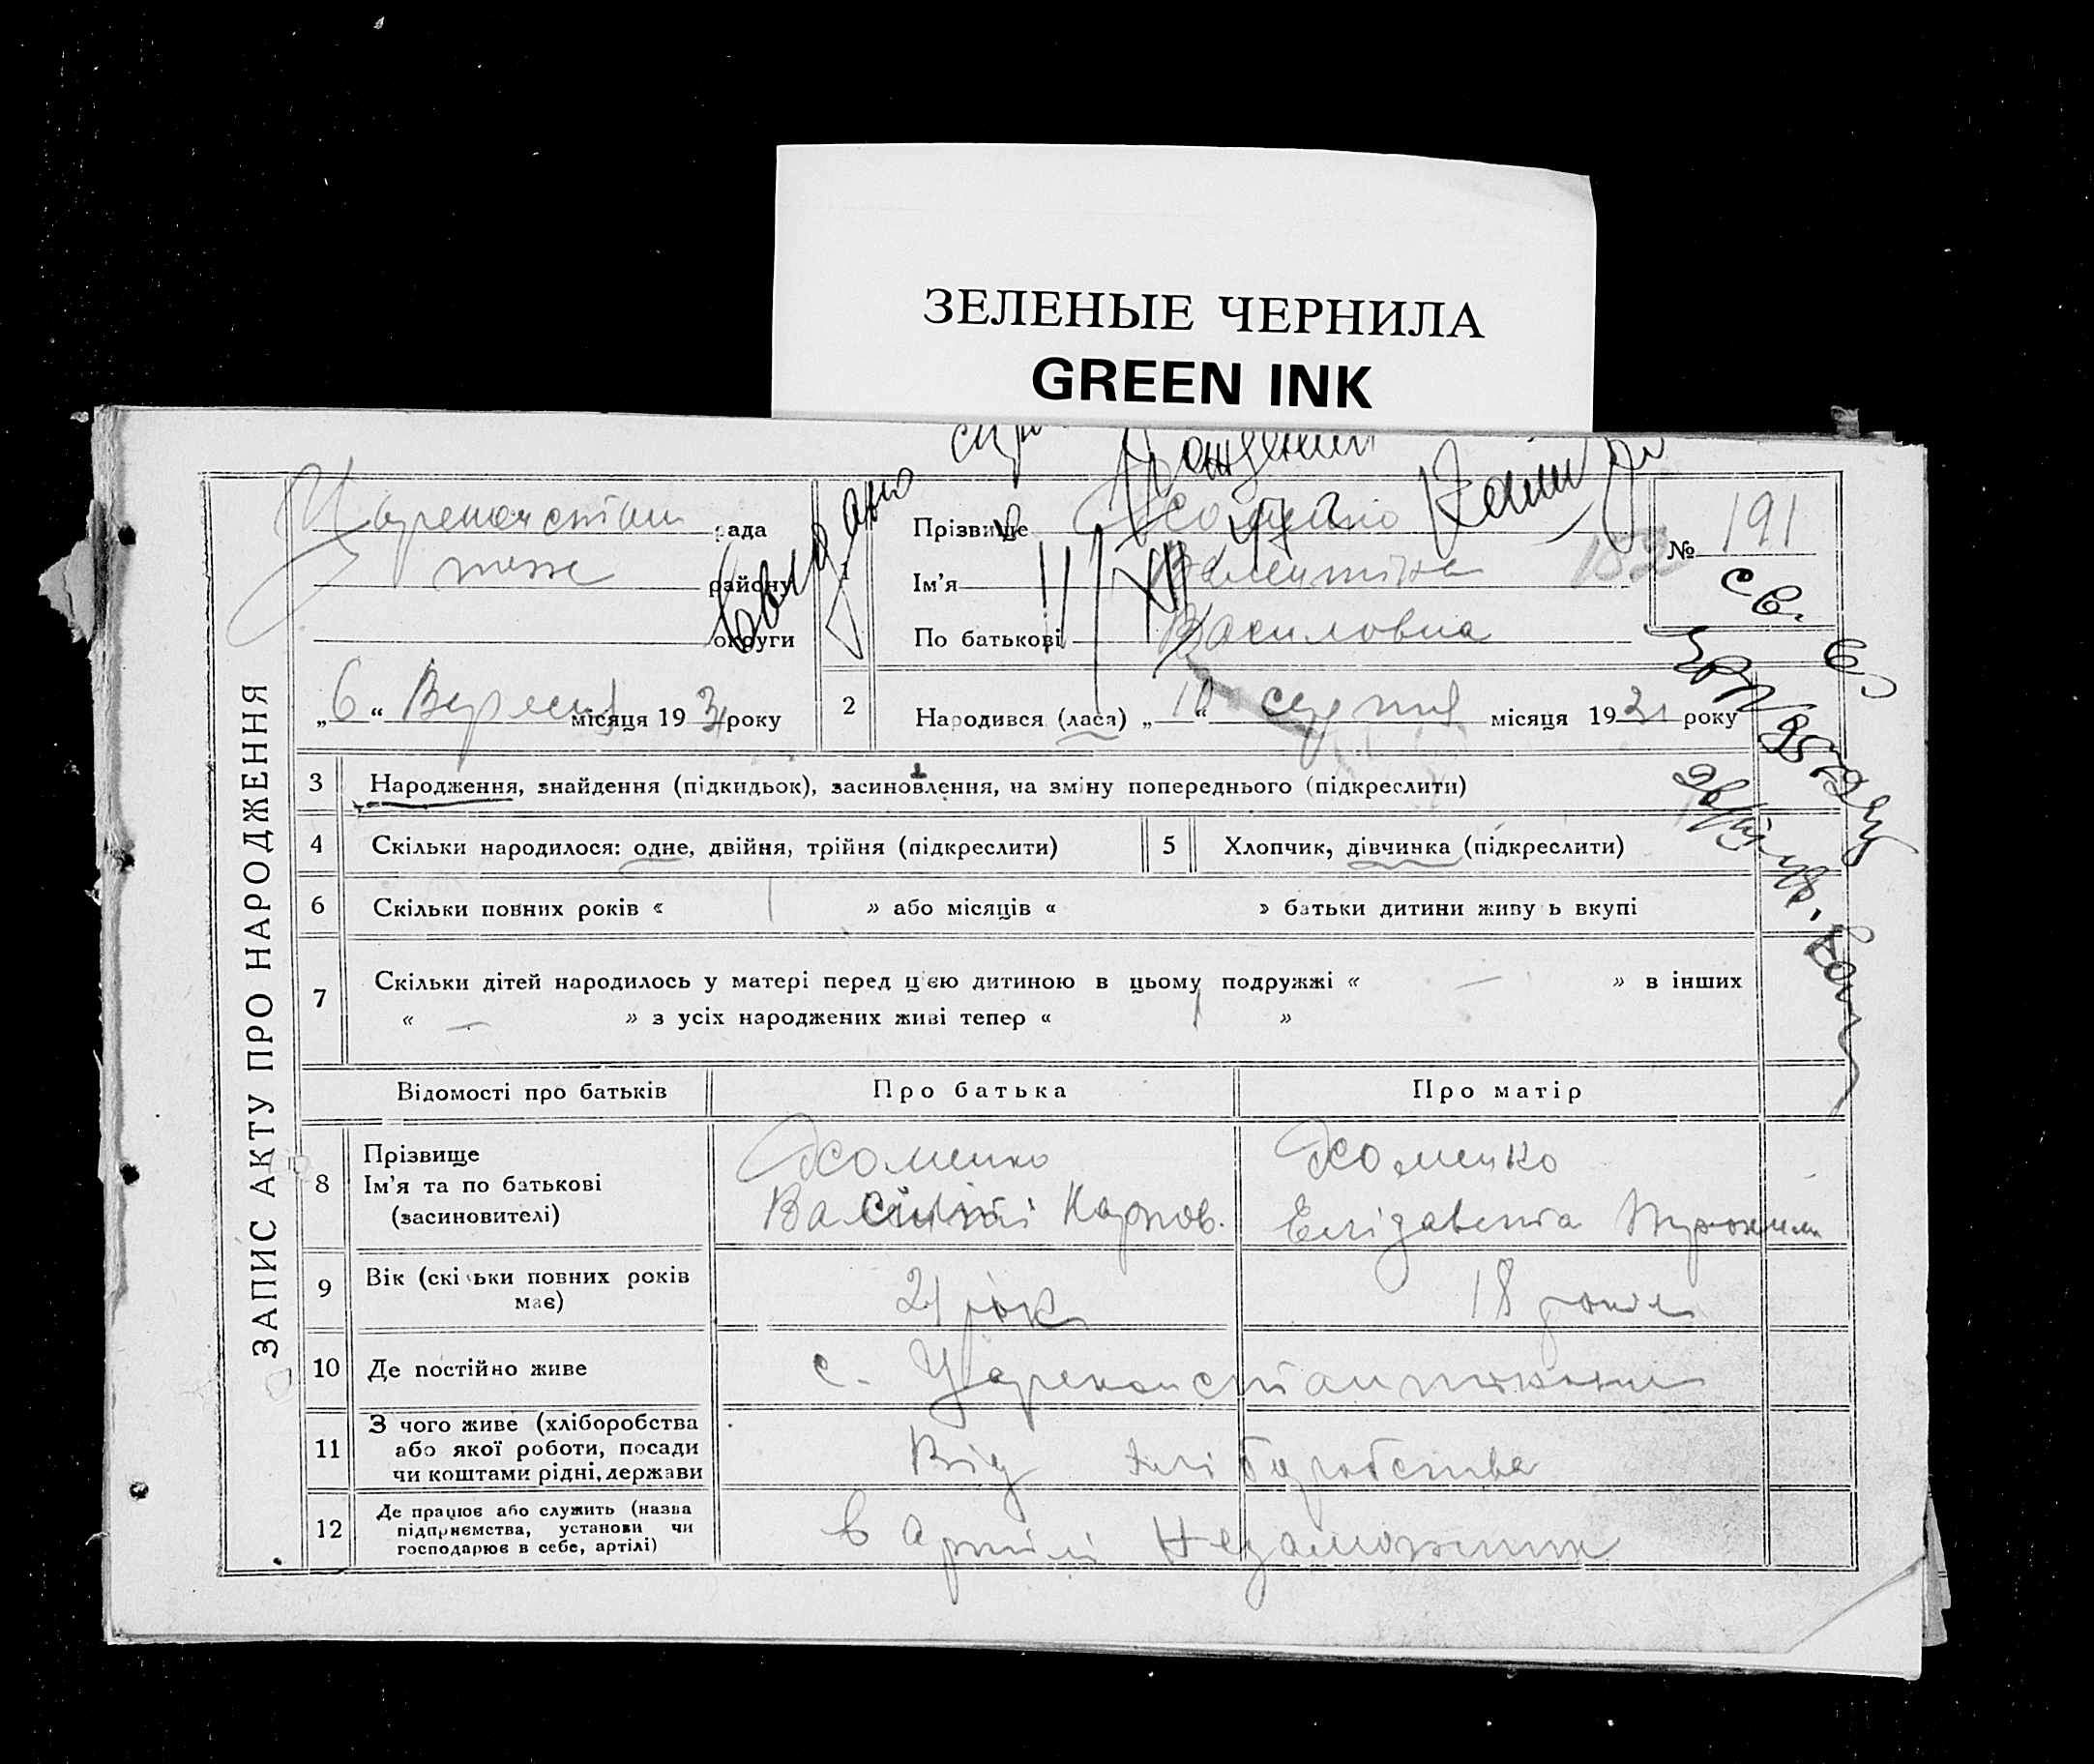 ЗЕЛЕНЫЕ ЧЕРНИЛА
GREEN INK
ЗАПИС АКТУ ПРО НАРОДЖЕННЯ
рада
теж району
округи
„6“ Вересня місяця 193 року
Выдано
1 Прізвище Хоменко
Ім'я Валентина
По батькові Василовна
№ 191
182
св.
2 Народився (лася) „10“ серпня місяця 1931 року
3 Народження, знайдення (підкидьок), засиновлення, на зміну попереднього (підкреслити)
4 Скільки народилося: одне, двійня, трійня (підкреслити)
5 Хлопчик, дівчинка (підкреслити)
6 Скільки повних років « 1 » або місяців « » батьки дитини живуть вкупі
7 Скільки дітей народилось у матері перед цією дитиною в цьому подружжі « — » в інших
« — » з усіх народжених живі тепер « 1 »
Відомості про батьків Про батька Про матір
8 Прізвище
Ім'я та по батькові
(засиновителі)
Хоменко
Василій Карпов.
Хоменко
Елізавента
9 Вік (скільки повних років
має)
21 рок
18 років
10 Де постійно живе
с. Цареконстантиновки
11 З чого живе (хліборобства
або якої роботи, посади
чи коштами рідні, держави
Від хліборобства
12 Де працює або служить (назва
підприємства, установи чи
господарює в себе, артілі)
в Артілі Незаможник